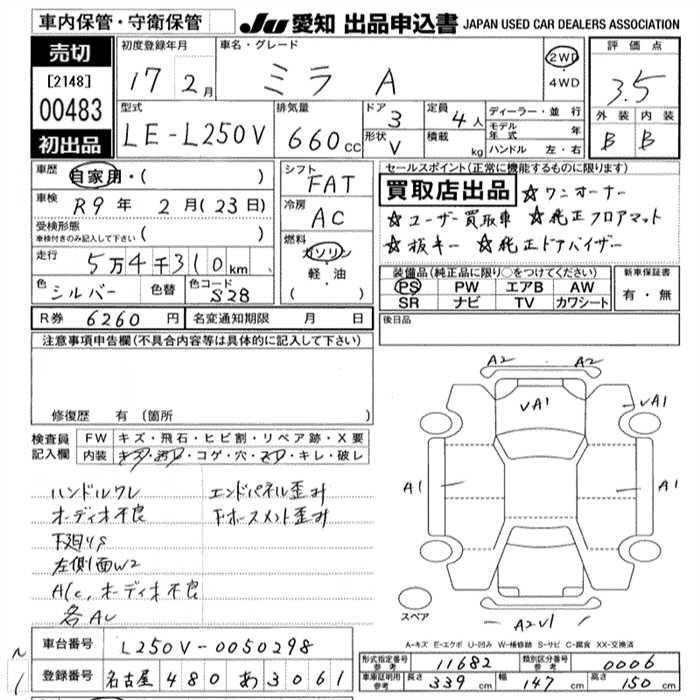 車内保管・守衛保管
JU 愛知 出品申込書 JAPAN USED CAR DEALERS ASSOCIATION
売切
[2148]
00483
初出品
初度登録年月
17 2月
車名・グレード
ミラ A
2WD
・
4WD
評価点
3.5
外装 内装
B B
型式
LE-L250V
排気量
660cc
ドア
3
定員
4人
形状
V
積載
kg
ディーラー・並行
モデル年式 年
ハンドル 左・右
車歴
自家用・( )
車検
R9年 2月(23日)
受検形態
車検付きのみ記入して下さい ( )
走行
5万4千310km
色
シルバー
色替
色コード
S28
シフト
FAT
冷房
AC
燃料
ガソリン
・
軽・油
( )
セールスポイント(正常に機能するものに限ります)
買取店出品 ☆ワンオーナー
☆ユーザー買取車 ☆純正フロアマット
☆抜キー ☆純正ドアバイザー
装備品(純正品に限り○をつけてください)
PS PW エアB AW
SR ナビ TV カワシート
新車保証書
有・無
R券 6260円
名変通知期限 月 日
後日品
注意事項申告欄(不具合内容等は具体的に記入して下さい)
修復歴 有(箇所 )
検査員
記入欄
FW キズ・飛石・ヒビ割・リペア跡・X要
内装 キズ・汚レ・コゲ・穴・スレ・キレ・破レ
ハンドルワレ
オーディオ不良
下廻りS
左側面W2
A/C,オーディオ不良
各AU
エンドパネル歪み
A2 A2
VA1 VA1
A1 A1
A2V1
スペア
A-キズ E-エクボ U-凹み W-補修跡 S-サビ C-腐食 XX-交換済
車台番号 L250V-0050298
登録番号 名古屋 480 あ 3061
形式指定番号
参考
11682
類別区分番号
参考
0006
車庫証明用
参考
長さ 339cm 幅 147cm 高さ 150cm